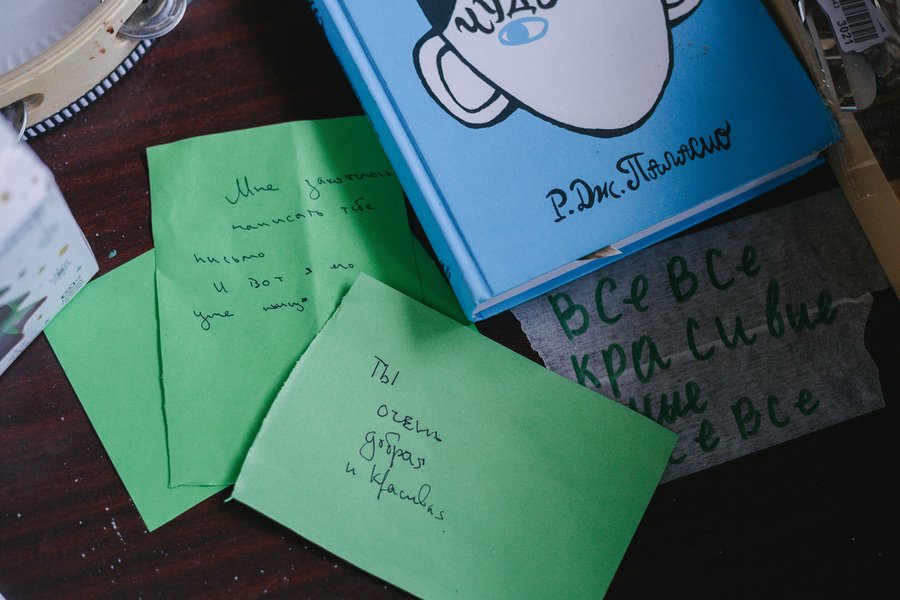 чудо
Р. Дж. Паласио
Мне захотелось
написать тебе
письмо
И вот я его
уже пишу
ты
очень
добрая
и красивая.
все все
красивые
все все
3021